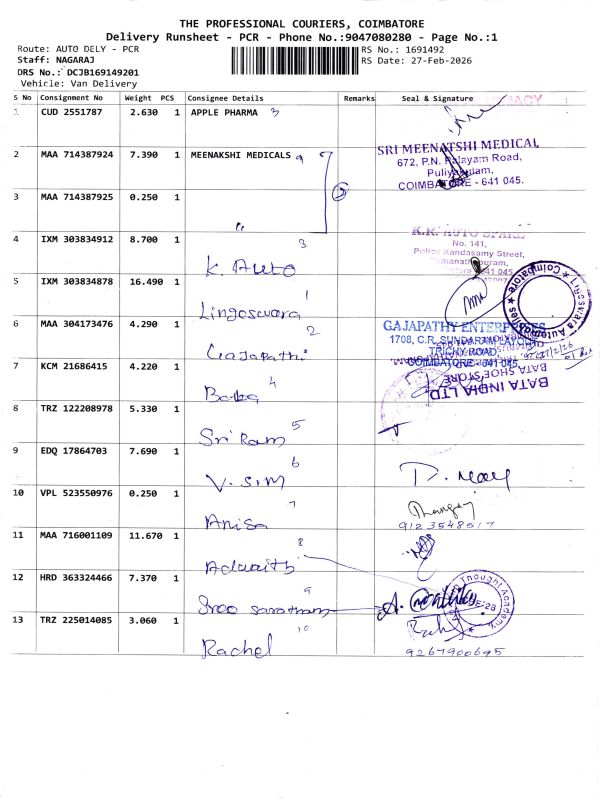 THE PROFESSIONAL COURIERS, COIMBATORE
Delivery Runsheet - PCR - Phone No.:9047080280 - Page No.:1
Route: AUTO DELY - PCR
RS No.: 1691492
Staff: NAGARAJ
RS Date: 27-Feb-2026
DRS No.: DCJB169149201
Vehicle: Van Delivery
S No Consignment No Weight PCS Consignee Details Remarks Seal & Signature
1 CUD 2551787 2.630 1 APPLE PHARMA 3
2 MAA 714387924 7.390 1 MEENAKSHI MEDICALS 9
SRI MEENATSHI MEDICAL
672, P.N. Palayam Road,
Puliyakulam,
COIMBATORE - 641 045.
3 MAA 714387925 0.250 1 "
4 IXM 303834912 8.700 1 K. Auto 3
K.R. AUTO SPARE
No. 141,
Police Kandasamy Street,
5 IXM 303834878 16.490 1 Lingeswara 1
Coimbatore
6 MAA 304173476 4.290 1 Gajapathi 2
GAJAPATHY ENTERPRISES
1708, C.R. SUNDARAM LAYOUT
TRICHY ROAD,
COIMBATORE - 641 045.
7 KCM 21686415 4.220 1 Bata 4
BATA INDIA LTD
BATA SHOE STORE
8 TRZ 122208978 5.330 1 Sri Ram 5
9 EDQ 17864703 7.690 1 V. S. M 6
10 VPL 523550976 0.250 1 Anisa 7
9123548517
11 MAA 716001109 11.670 1 Adwaith 8
12 HRD 363324466 7.370 1 9
Thought Academy
13 TRZ 225014085 3.060 1 Rachel 10
9267900695